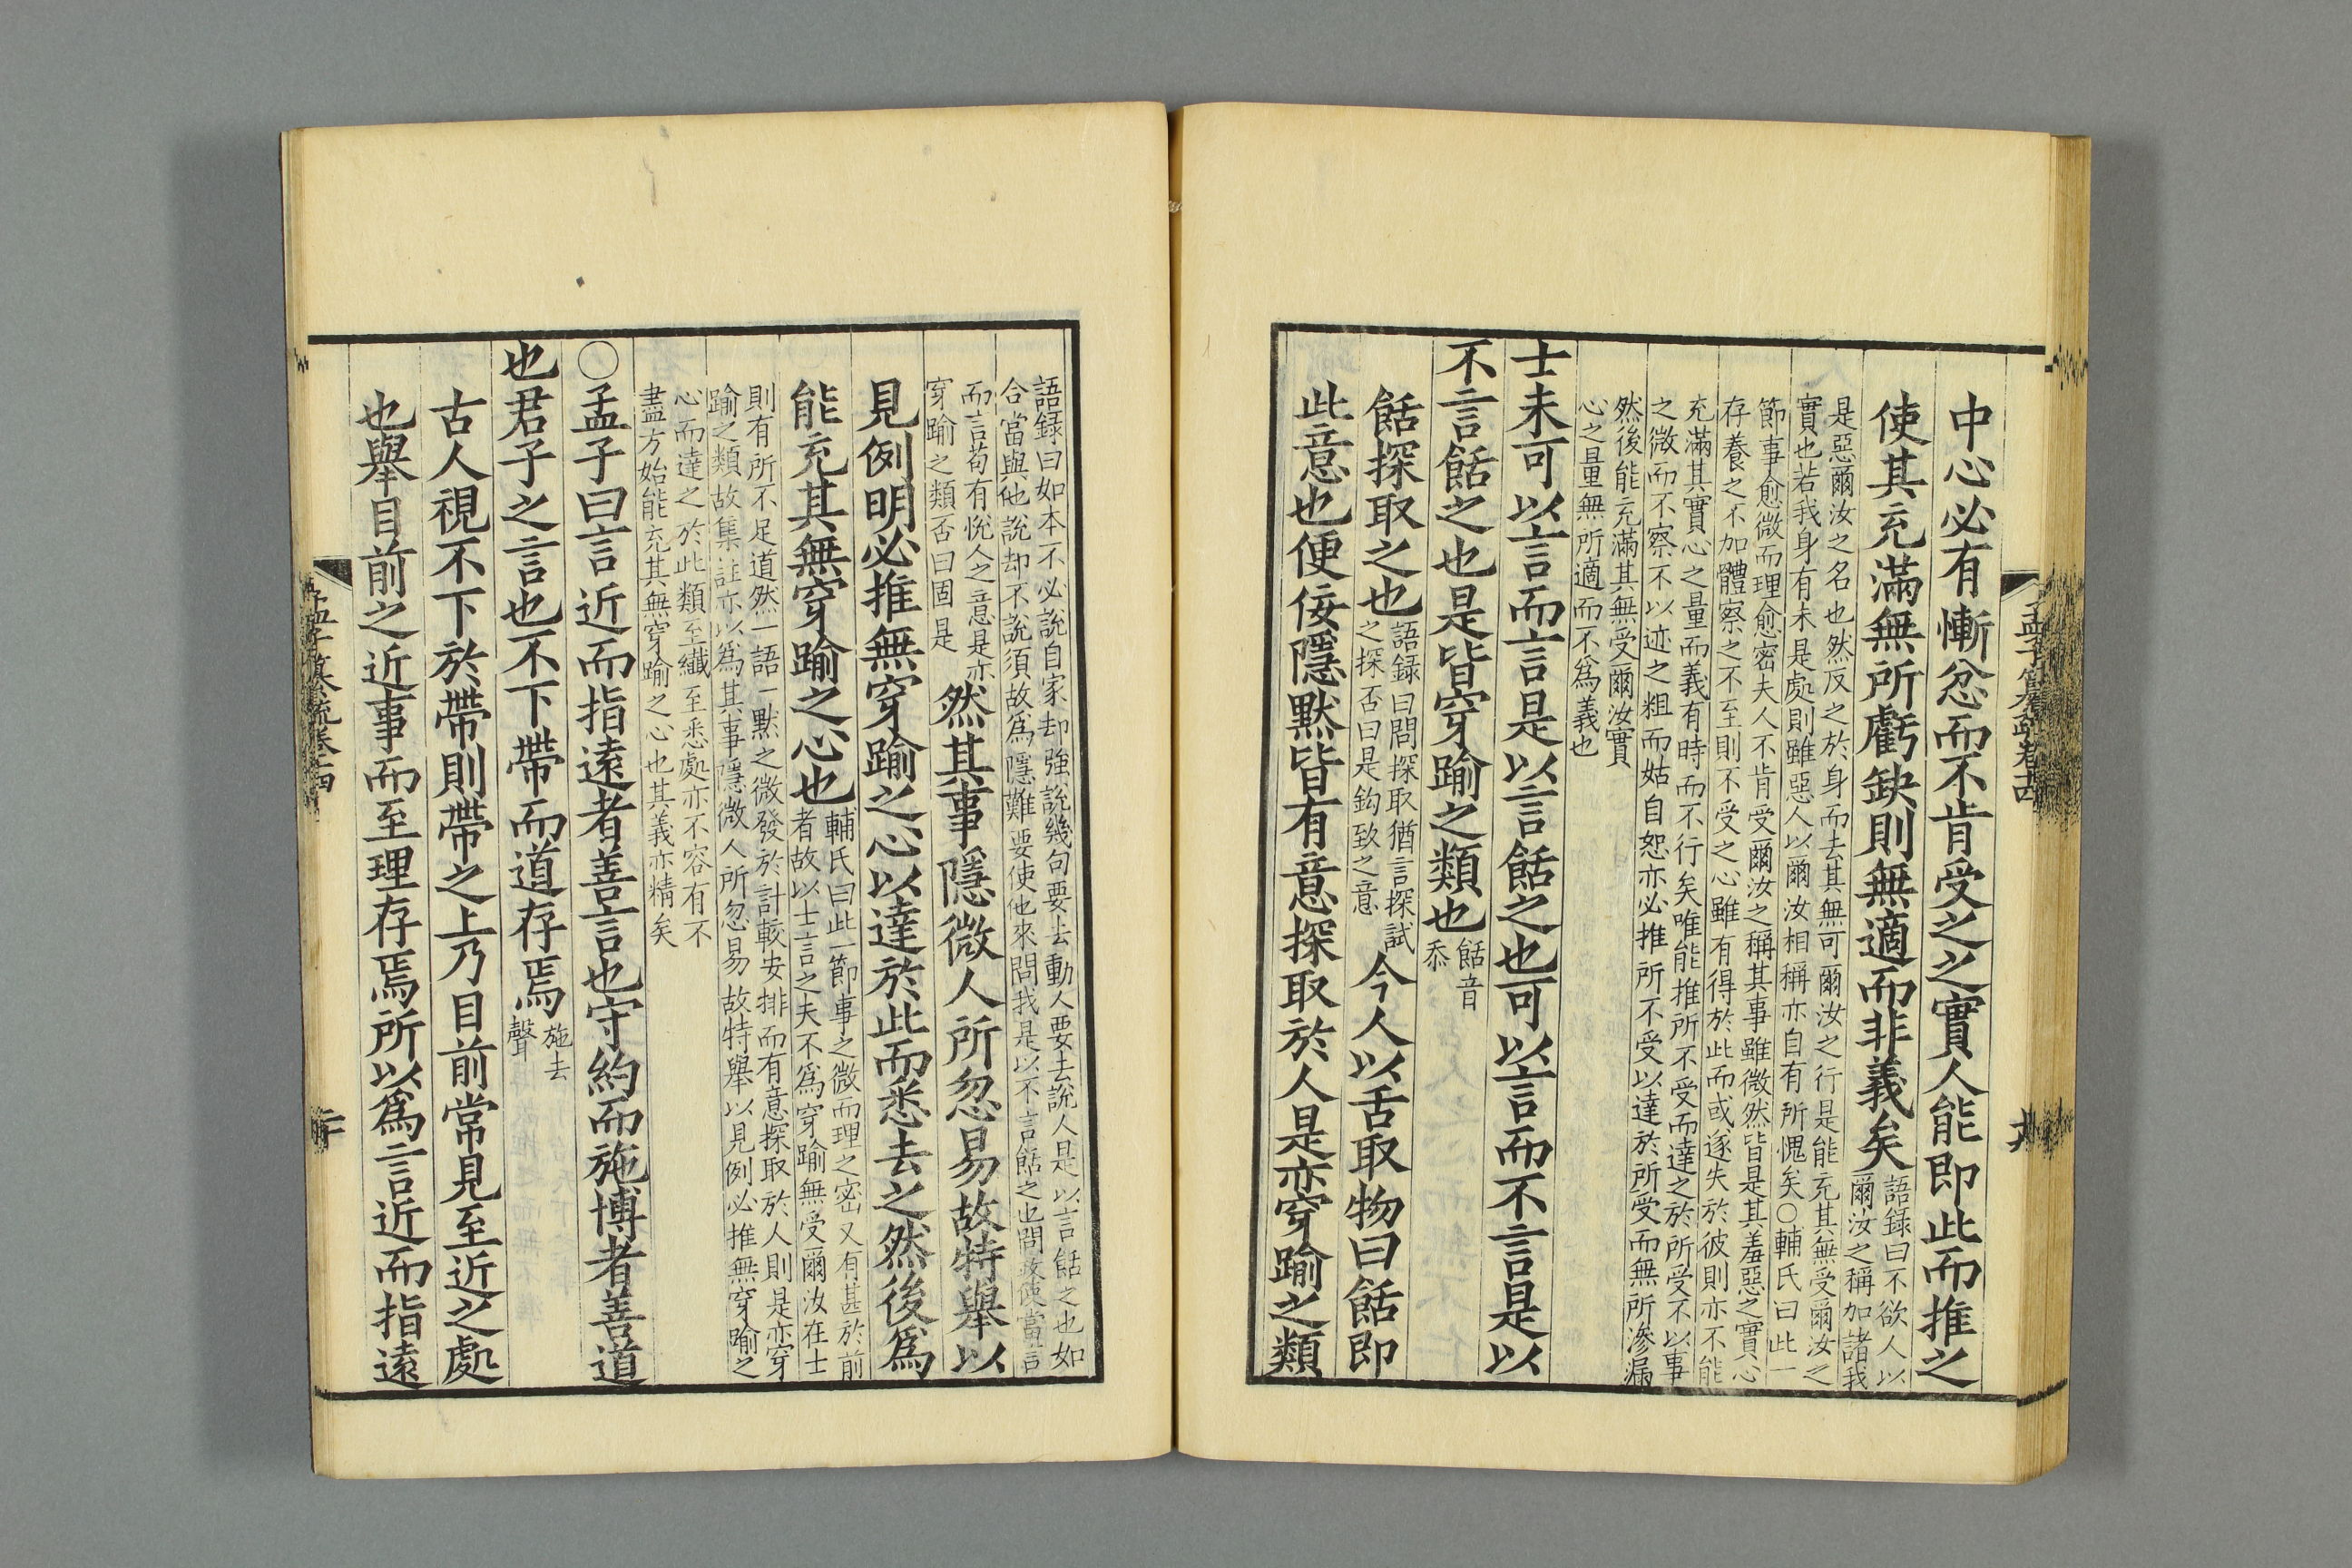 中心必有慚忿而不肯受之之實人能即此而推之
使其充滿無所虧缺則無適而非義矣
語錄曰不欲人以
爾汝之稱加諸我
是惡爾汝之名也然反之於身而去其無可爾汝之行是能充其無受爾汝之
實也若我身有未是處則雖惡人以爾汝相稱亦自有所愧矣○輔氏曰此一
節事愈微而理愈密夫人不肯受爾汝之稱其事雖微然皆是其羞惡之實心
存養之不加體察之不至則不受之心雖有得於此而或遂失於彼則亦不能
充滿其實心之量而義有時而不行矣唯能推所不受而達之於所受不以事
之微而不察不以迹之粗而姑自恕亦必推所不受以達於所受而無所滲漏
然後能充滿其無受爾汝實
心之量無所適而不爲義也
士未可以言而言是以言餂之也可以言而不言是以
不言餂之也是皆穿踰之類也
餂音
忝
餂探取之也
語錄曰問探取猶言探試
之探否曰是鈎致之意
今人以舌取物曰餂即
此意也便佞隱默皆有意探取於人是亦穿踰之類
語錄曰如本不必說自家却強說幾句要去動人要去說人是以言餂之也如
合當與他說却不說須故爲隱難要使他來問我是以不言餂之也問政使當言
而言苟有悅人之意是亦
穿踰之類否曰固是
然其事隱微人所忽易故特舉以
見例明必推無穿踰之心以達於此而悉去之然後爲
能充其無穿踰之心也
輔氏曰此一節事之微而理之密又有甚於前
者故以士言之夫不爲穿踰無受爾汝在士
則有所不足道然一語一默之微發於計較安排而有意探取於人則是亦穿
踰之類故集註亦以爲其事隱微人所忽易故特舉以見例必推無穿踰之
心而達之於此類至纖至悉處亦不容有不
盡方始能充其無穿踰之心也其義亦精矣
○孟子曰言近而指遠者善言也守約而施博者善道
也君子之言也不下帶而道存焉
施去
聲
古人視不下於帶則帶之上乃目前常見至近之處
也舉目前之近事而至理存焉所以爲言近而指遠
孟子纂疏卷十四